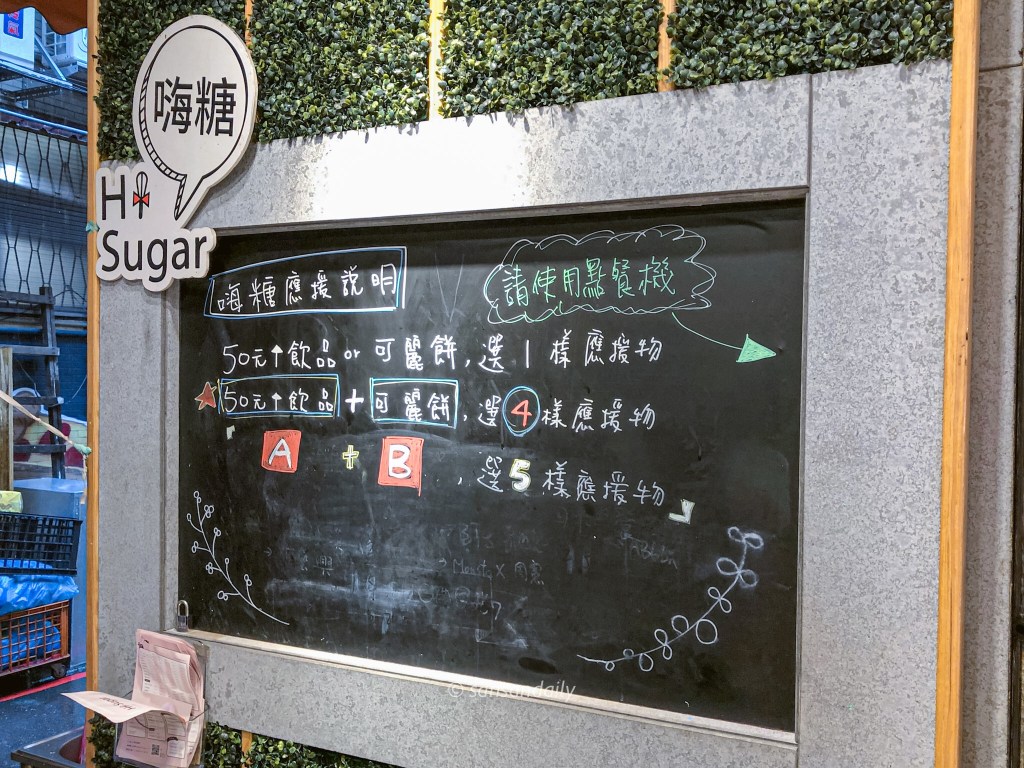 嗨糖
Hi
Sugar
嗨糖應援說明
請使用點餐機
50元↑飲品or可麗餅,選1樣應援物
50元↑飲品+可麗餅,選4樣應援物
A + B ,選5樣應援物
© sansan daily